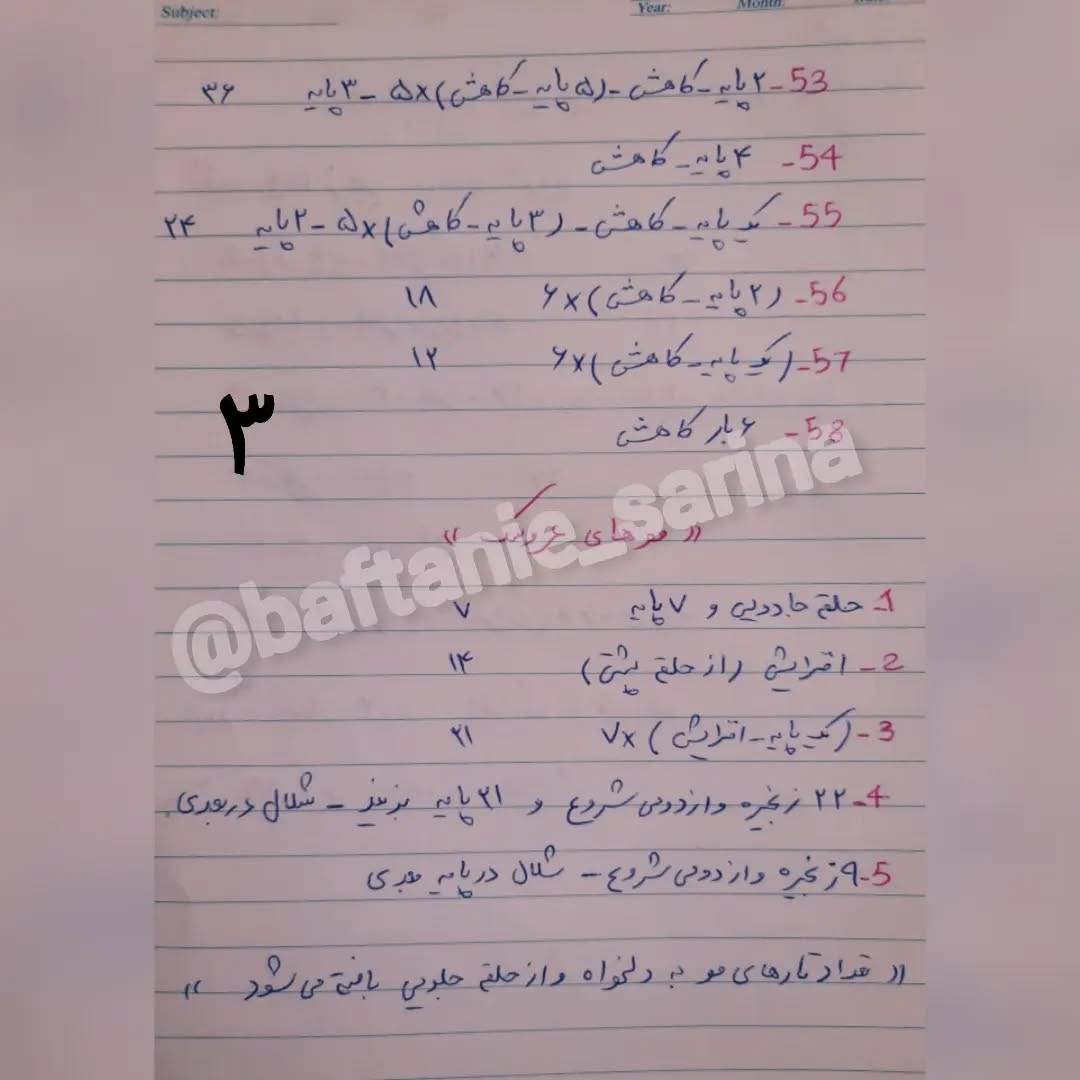 Subject:
Year:
Month:
53- ۲ پایه - کاهش - (۵ پایه - کاهش)×۵ - ۳ پایه ۳۶
54- ۴ پایه - کاهش
55- یک پایه - کاهش - (۳ پایه - کاهش)×۵ - ۲ پایه ۲۴
56- (۲ پایه - کاهش)×۶ ۱۸
57- (یک پایه - کاهش)×۶ ۱۲
58- ۶ بار کاهش
۳
@baftanie_sarina
« موهای عروسک »
1- حلقه جادویی و ۷ پایه ۷
2- افزایش (از حلقه پشتی) ۱۴
3- (یک پایه - افزایش)×۷ ۲۱
4- ۲۲ زنجیره و از دومی شروع و ۲۱ پایه بزنید - شلال در بعدی.
5- ۹ زنجیره و از دومی شروع - شلال در پایه بعدی
« تعداد تارهای مو به دلخواه و از حلقه جلویی بافته می شود »